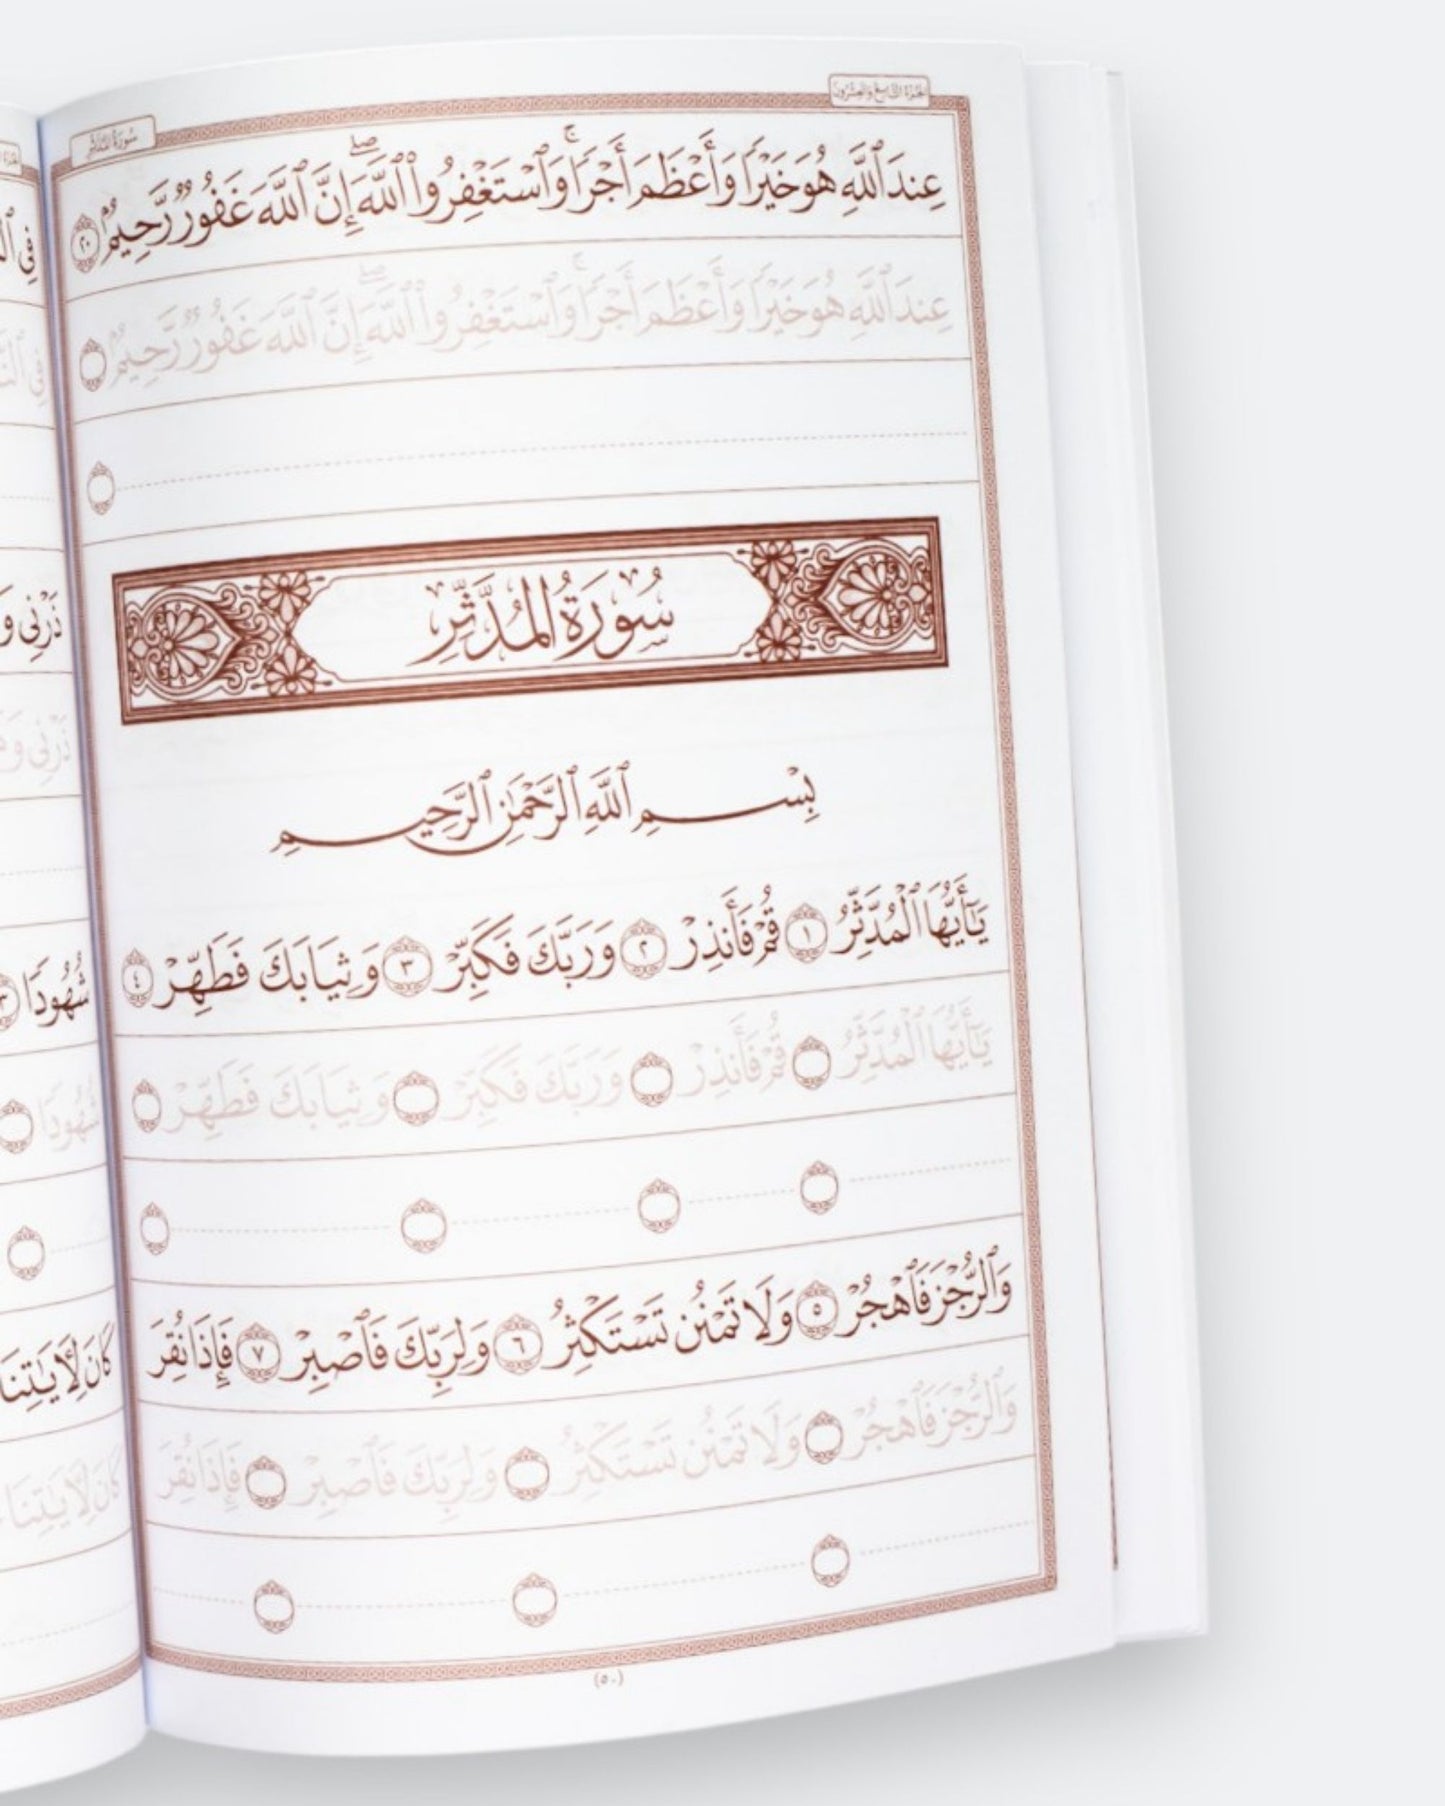 الجزء التاسع والعشرون
سورة المدثر
عِندَ ٱللَّهِ هُوَ خَيْرًا وَأَعْظَمَ أَجْرًا ۚ وَٱسْتَغْفِرُوا۟ ٱللَّهَ ۖ إِنَّ ٱللَّهَ غَفُورٌ رَّحِيمٌ ٢٠
عِندَ ٱللَّهِ هُوَ خَيْرًا وَأَعْظَمَ أَجْرًا ۚ وَٱسْتَغْفِرُوا۟ ٱللَّهَ ۖ إِنَّ ٱللَّهَ غَفُورٌ رَّحِيمٌ
سُورَةُ المُدَّثِّرِ
بِسْمِ ٱللَّهِ ٱلرَّحْمَٰنِ ٱلرَّحِيمِ
يَٰٓأَيُّهَا ٱلْمُدَّثِّرُ ١ قُمْ فَأَنذِرْ ٢ وَرَبَّكَ فَكَبِّرْ ٣ وَثِيَابَكَ فَطَهِّرْ ٤
يَٰٓأَيُّهَا ٱلْمُدَّثِّرُ قُمْ فَأَنذِرْ وَرَبَّكَ فَكَبِّرْ وَثِيَابَكَ فَطَهِّرْ
وَٱلرُّجْزَ فَٱهْجُرْ ٥ وَلَا تَمْنُن تَسْتَكْثِرُ ٦ وَلِرَبِّكَ فَٱصْبِرْ ٧ فَإِذَا نُقِرَ
وَٱلرُّجْزَ فَٱهْجُرْ وَلَا تَمْنُن تَسْتَكْثِرُ وَلِرَبِّكَ فَٱصْبِرْ فَإِذَا نُقِرَ
(٥٠)
فِى
فِى
ذَرْنِى
ذَرْنِى
شُهُودًا
شُهُودًا
كَانَ لِأَيَٰتِنَا
كَانَ لِأَيَٰتِنَا